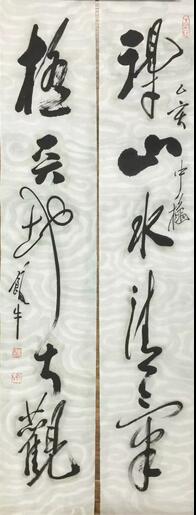 乙亥
得山水清氣
極天地大觀